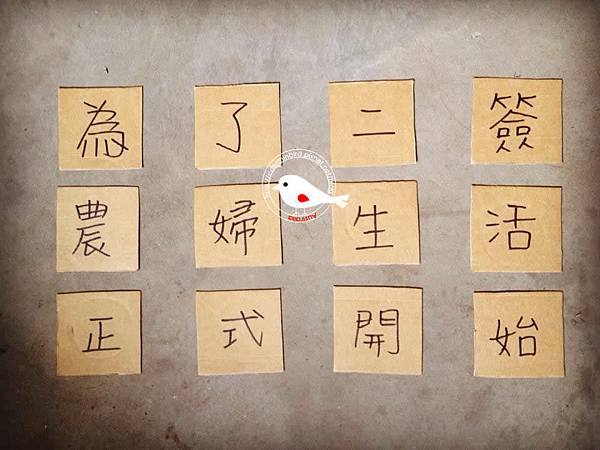 為了二簽
農婦生活
正式開始